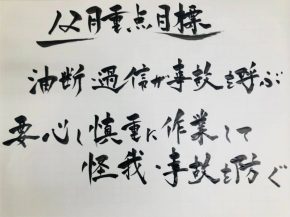 12月重点目標
油断・過信が事故を呼ぶ
要心し慎重に作業して
怪我・事故を防ぐ